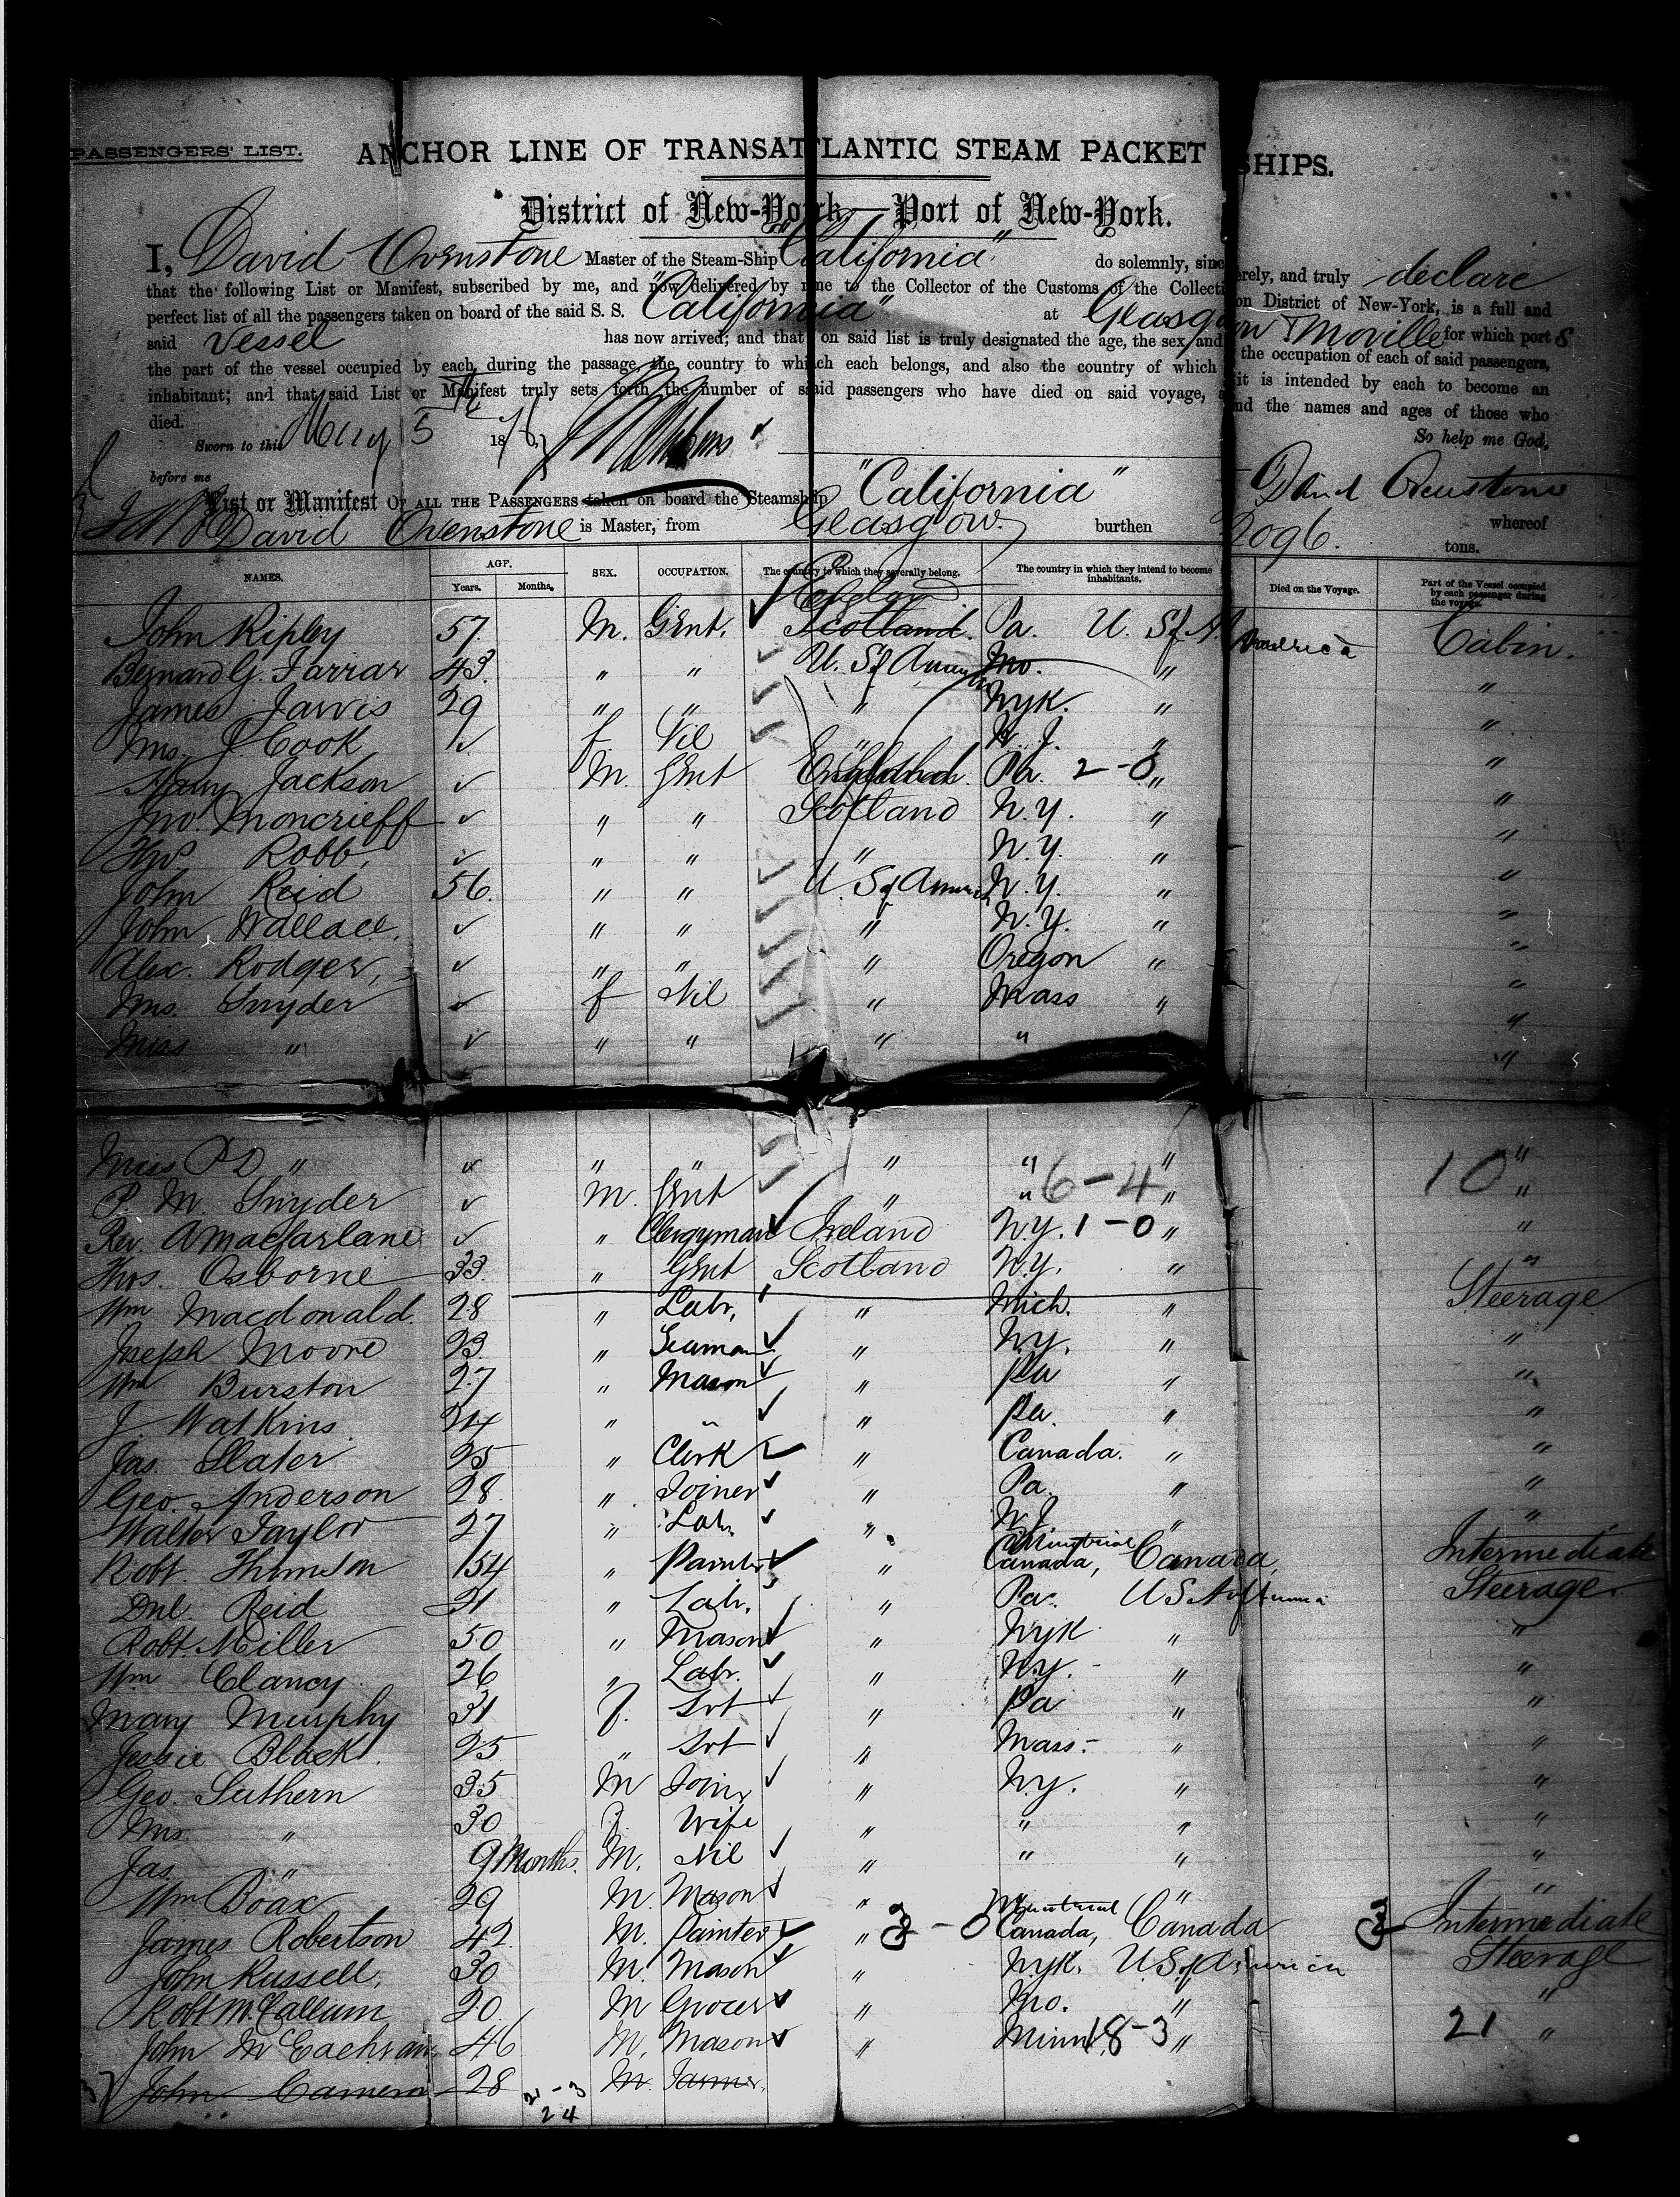 PASSENGERS' LIST.
ANCHOR LINE OF TRANSATLANTIC STEAM PACKET SHIPS.
District of New-York—Port of New-York.
I, David Ovenstone Master of the Steam-Ship "California" do solemnly, sincerely, and truly declare
that the following List or Manifest, subscribed by me, and now delivered by me to the Collector of the Customs of the Collection District of New-York, is a full and
perfect list of all the passengers taken on board of the said S. S. "California" at Glasgow & Moville for which port s
said Vessel has now arrived; and that on said list is truly designated the age, the sex, and the occupation of each of said passengers,
the part of the vessel occupied by each, during the passage, the country to which each belongs, and also the country of which it is intended by each to become an
inhabitant; and that said List or Manifest truly sets forth the number of said passengers who have died on said voyage, and the names and ages of those who
died.
Sworn to this May 5th 18 So help me God,
before me David Ovenstone
List or Manifest OF ALL THE PASSENGERS taken on board the Steamship "California" whereof
David Ovenstone is Master, from Glasgow. burthen 2096. tons.
NAMES. AGE. Years. Months. SEX. OCCUPATION. The country to which they severally belong. The country in which they intend to become inhabitants. Died on the Voyage. Part of the Vessel occupied by each passenger during the voyage.
John Ripley 57. M. Gent. Scotland. Pa. U. S of America Cabin.
Bernard G. Farrar 43. " " U. S of America Mo. " "
James Jarvis 29 " " " NYk. " "
Mrs. J. Cook ✓ f Nil " N. J. " "
Harry Jackson ✓ M. Gent England Pa. 2-0 " "
Jno. Moncrieff ✓ " " Scotland N.Y. " "
Robb. ✓ " " " N.Y. " "
John Reid 56. " " U. S of America N.Y. " "
John Wallace. ✓ " " " N.Y. " "
Alex. Rodger, ✓ " " " Oregon " "
Mrs. Snyder ✓ f Nil " Mass " "
Miss " ✓ " " " " "
Miss P D " ✓ " " " " " "
P. M. Snyder ✓ M. Gent " " 6-4 " 10 "
Rev. A Macfarlane ✓ " Clergyman Ireland N.Y. 1-0 " "
Thos. Osborne 33. " Gent Scotland N.Y. " "
Wm Macdonald. 28 " Labr. " Mich. " Steerage
Joseph Moore 23. " Seaman " N.Y. " "
Wm Burston 27 " Mason " Pa " "
J. Watkins. 24 " " " Pa. " "
Jas. Slater 25 " Clerk " Canada. " "
Geo. Anderson 28. " Joiner " Pa. " "
Walter Taylor 27 " Labr. " N J " "
Robt. Thomson 54 " Painter " Canada, Canada, Intermediate
Dnl. Reid 21 " Labr. " Pa. U S of America Steerage.
Robt. Miller 50 " Mason " NYk " "
Wm Clancy 26 " Labr. " N.Y. " "
Mary Murphy 31 f. Svt " Pa " "
Jessie Black. 25 " Svt " Mass. " "
Geo. Suthern 35 M Joiner " N.Y. " "
Mrs. " 30 f. Wife " " " "
Jas. " 9 Months. M. Nil " " " "
Wm Boax 29 M. Mason " " " "
James Robertson 42. M. Painter " 3-0 Canada, Canada 3 Intermediate
John Russell, 30 M. Mason " NYk. U S of America Steerage
Robt McCallum 20. M Grocer " Mo. " "
John McEachran 46 M. Mason " Minn. 18-3 " 21 "
John Cameron 28 M. Farmer.
21-3
24